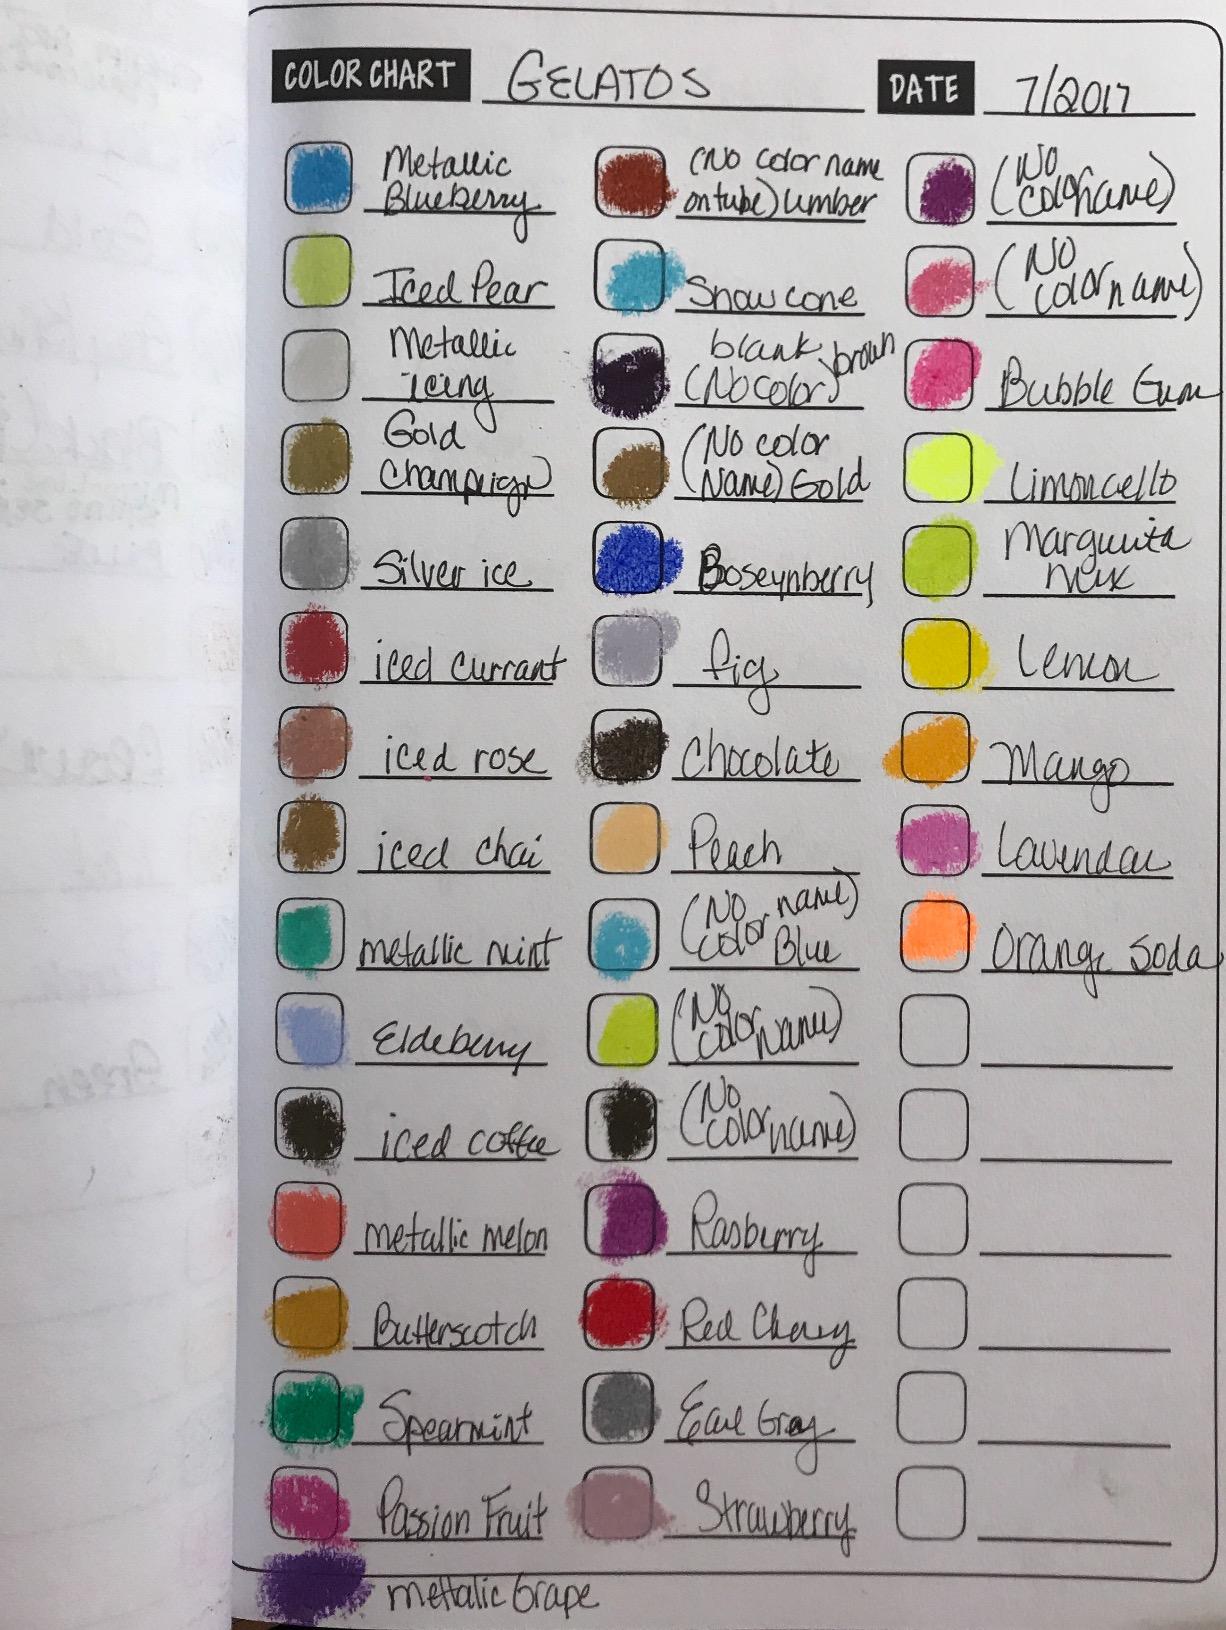 COLOR CHART GELATOS DATE 7/2017
Metallic
Blueberry
Iced Pear
Metallic
icing
Gold
Champaign
Silver ice
iced currant
iced rose
iced chai
metallic mint
Eldeberry
iced coffee
metallic melon
Butterscotch
Spearmint
Passion Fruit
mettalic Grape
(No color name
on tube) umber
Snow cone
blank brown
(No color)
(No color
Name) Gold
Boseynberry
fig
Chocolate
Peach
(No name)
color Blue
(No
color name)
(No
color name)
Rasberry
Red Cherry
Earl Gray
Strawberry
(No
color name)
(No
color name)
Bubble Gum
Limoncello
Margurita
mix
Lemon
Mango
Lavendar
Orange Soda